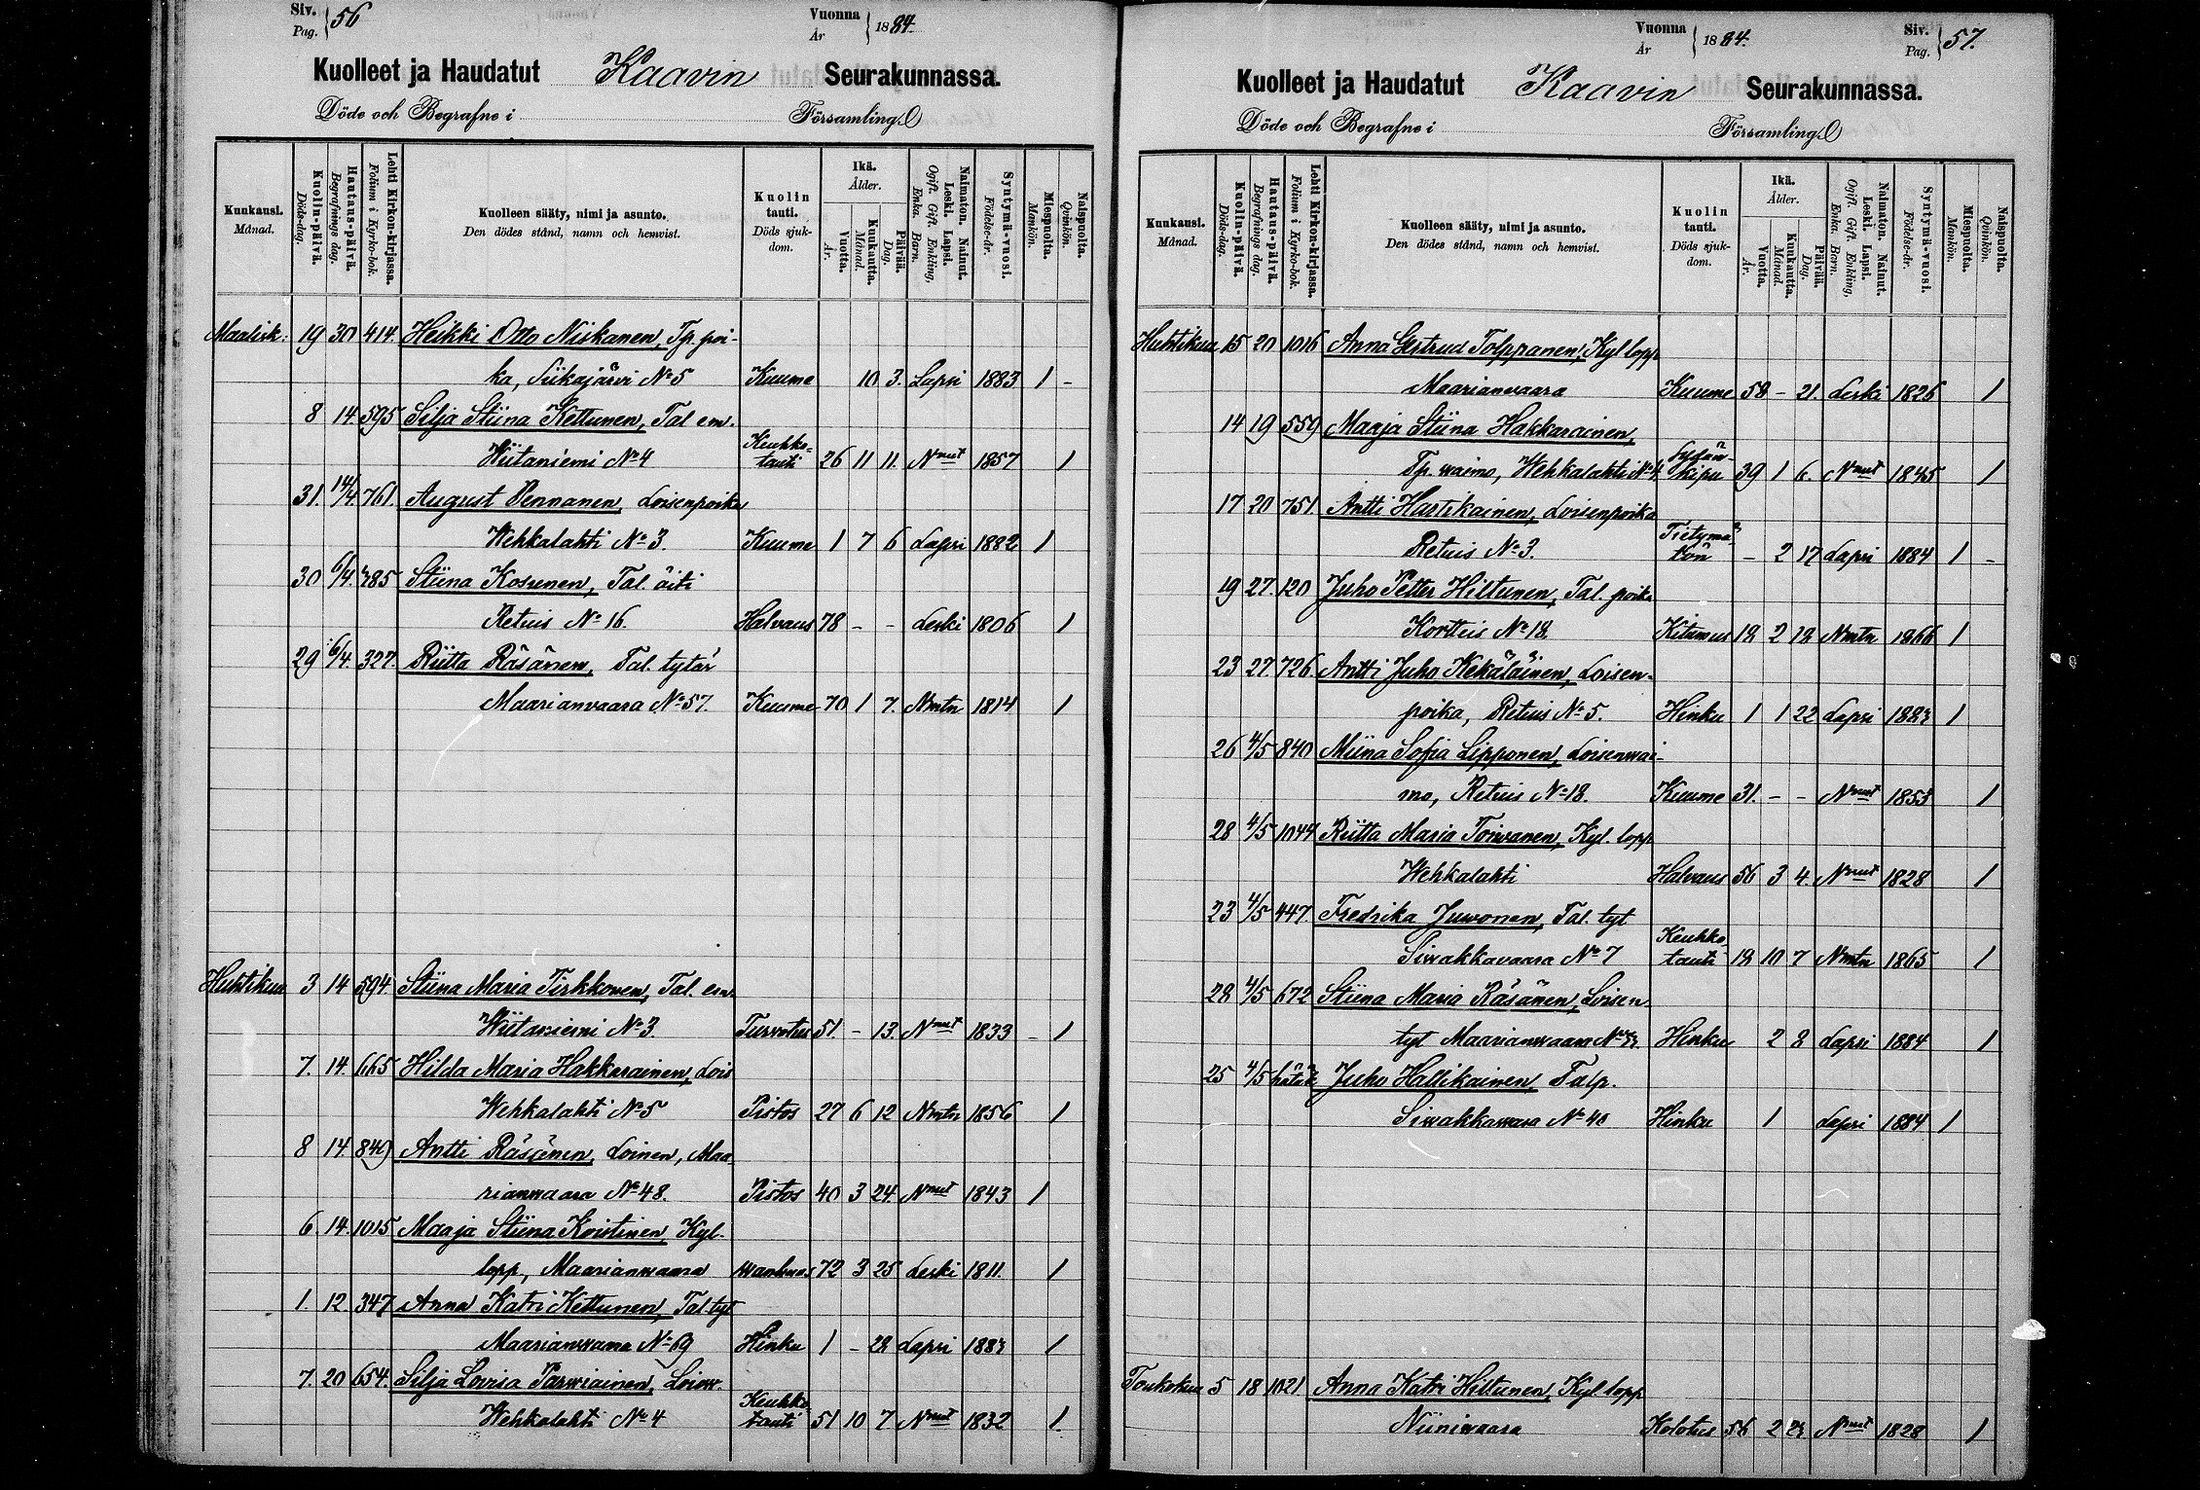 Siv. Pag. 56
Vuonna År 1884.
Kuolleet ja Haudatut Kaavin Seurakunnassa.
Döde och Begrafne i Församling.
Kuukausi. Månad.
Kuolin-päivä. Döds-dag.
Hautaus-päivä. Begrafnings dag.
Lehti Kirkon-kirjassa. Folium i Kyrko-bok.
Kuolleen sääty, nimi ja asunto. Den dödes stånd, namn och hemvist.
Kuolin tauti. Döds sjukdom.
Ikä. Ålder.
Vuotta. År.
Kuukautta. Månad.
Päivää. Dag.
Naimaton. Nainut. Leski. Lapsi. Ogift. Gift. Enkling, Enka. Barn.
Syntymä-vuosi. Födelse-år.
Miespuolta. Mankön.
Naispuolta. Qvinkön.
Maalisk: 19 30 414. Heikki Otto Niskanen, Tp. poi-
ka, Siikajärvi No 5 Kuume 10 3. Lapsi 1883 1 -
8 14 595 Silja Stiina Kettunen, Tal em.
Wiitaniemi No 4 Keuhko-tauti 26 11 11. Nnut 1857 1
31. 14/4 761. August Pennanen, Loisenpoika
Wehkalahti No 3. Kuume 1 7 6 Lapsi 1882 1
30 6/4. 785 Stiina Kosunen, Tal. äiti
Retuis No 16. Halvaus 78 - - Leski 1806 1
29 6/4. 327. Riitta Räsänen, Tal. tytär
Maarianvaara No 57. Kuume 70 1 7. Nmtn 1814 1
Huhtikuu 3 14 594 Stiina Maria Tirkkonen, Tal. em.
Wiitaniemi No 3. Turvotus 51. - 13. Nnut 1833 - 1
7. 14. 665 Hilda Maria Hakkarainen, Lois
Wehkalahti No 5 Pistos 27 6 12 Nmtn 1856 1
8 14 849 Antti Räsänen, Loinen, Maa-
rianwaara No 48. Pistos 40 3 24. Nnut 1843 1
6. 14. 1015 Maaja Stiina Koistinen, Kyl.
lopp, Maarianwaara wanhuus 72 3 25 Leski 1811. 1
1. 12 347 Anna Katri Kettunen, Tal tyt
Maarianwaara No 69 Hinku 1 - 28 Lapsi 1883 1
7. 20 654. Silja Lovisa Parwiainen, Loisw.
Wehkalahti No 4 Keuhko-tauti 51 10 7 Nnut 1832 1.
Vuonna År 1884.
Siv. Pag. 57.
Kuolleet ja Haudatut Kaavin Seurakunnassa.
Döde och Begrafne i Församling.
Kuukausi. Månad.
Kuolin-päivä. Döds-dag.
Hautaus-päivä. Begrafnings dag.
Lehti Kirkon-kirjassa. Folium i Kyrko-bok.
Kuolleen sääty, nimi ja asunto. Den dödes stånd, namn och hemvist.
Kuolin tauti. Döds sjukdom.
Ikä. Ålder.
Vuotta. År.
Kuukautta. Månad.
Päivää. Dag.
Naimaton. Nainut. Leski. Lapsi. Ogift. Gift. Enkling, Enka. Barn.
Syntymä-vuosi. Födelse-år.
Miespuolta. Mankön.
Naispuolta. Qvinkön.
Huhtikuu 15 20 1016 Anna Gestrud Tolppanen, Kyl lopp
Maarianvaara Kuume 58 - 21. Leski 1826 1
14 19 559 Maaja Stiina Hakkarainen,
Tp. waimo, Wehkalahti No 4. Sydän-kipu 39 1 6. Nnut 1845 1
17 20 751 Antti Hartikainen, Loisenpoika
Retuis No 3. Tietymä-tön - 2 17 Lapsi 1884 1 -
19 27. 120 Juho Petter Hiltunen, Tal. poika
Kortteis No 18. Kitumus 18 2 18 Nmtn 1866 1
23 27. 726. Antti Juho Kekäläinen, Loisen-
poika, Retuis No 5. Hinku 1 1 22 Lapsi 1883 1
26 4/5 840 Miina Sofia Lipponen, Loisenwai-
mo, Retuis No 18. Kuume 31. - - Nnut 1853 1
28 4/5 1044 Riitta Maria Toiwanen, Kyl. lopp
Wehkalahti Halvaus 56 3 4. Nnut 1828 1
23 4/5 447. Fredrika Juwonen, Tal. tyt
Siwakkavaara No 7 Keuhko-tauti 18 10 7 Nmtn 1865 1
28 4/5 672 Stiina Maria Räsänen, Loisen
tyt Maarianwaara Hinku 2 8 Lapsi 1884 1
25 4/5 hätik Juho Hallikainen, Talp.
Siwakkawaara No 40 Hinku 1 Lapsi 1884 1
Toukokuu 5 18 1021 Anna Katri Hiltunen, Kyl lopp
Niiniwaara Kolotus 56 2 23 Nnut 1828 1